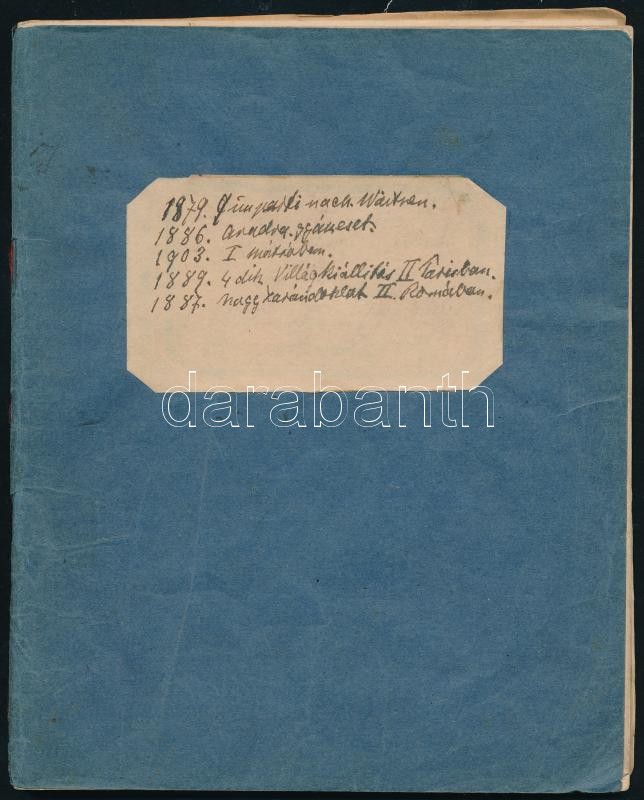 1879. nach Waitzen.
1886. Aradra gyászeset.
1903. I Mátrában.
1889. 4 dik Villágkiállitás II Párisban.
1887. nagy zarándoklat II. Romában.
darabanth